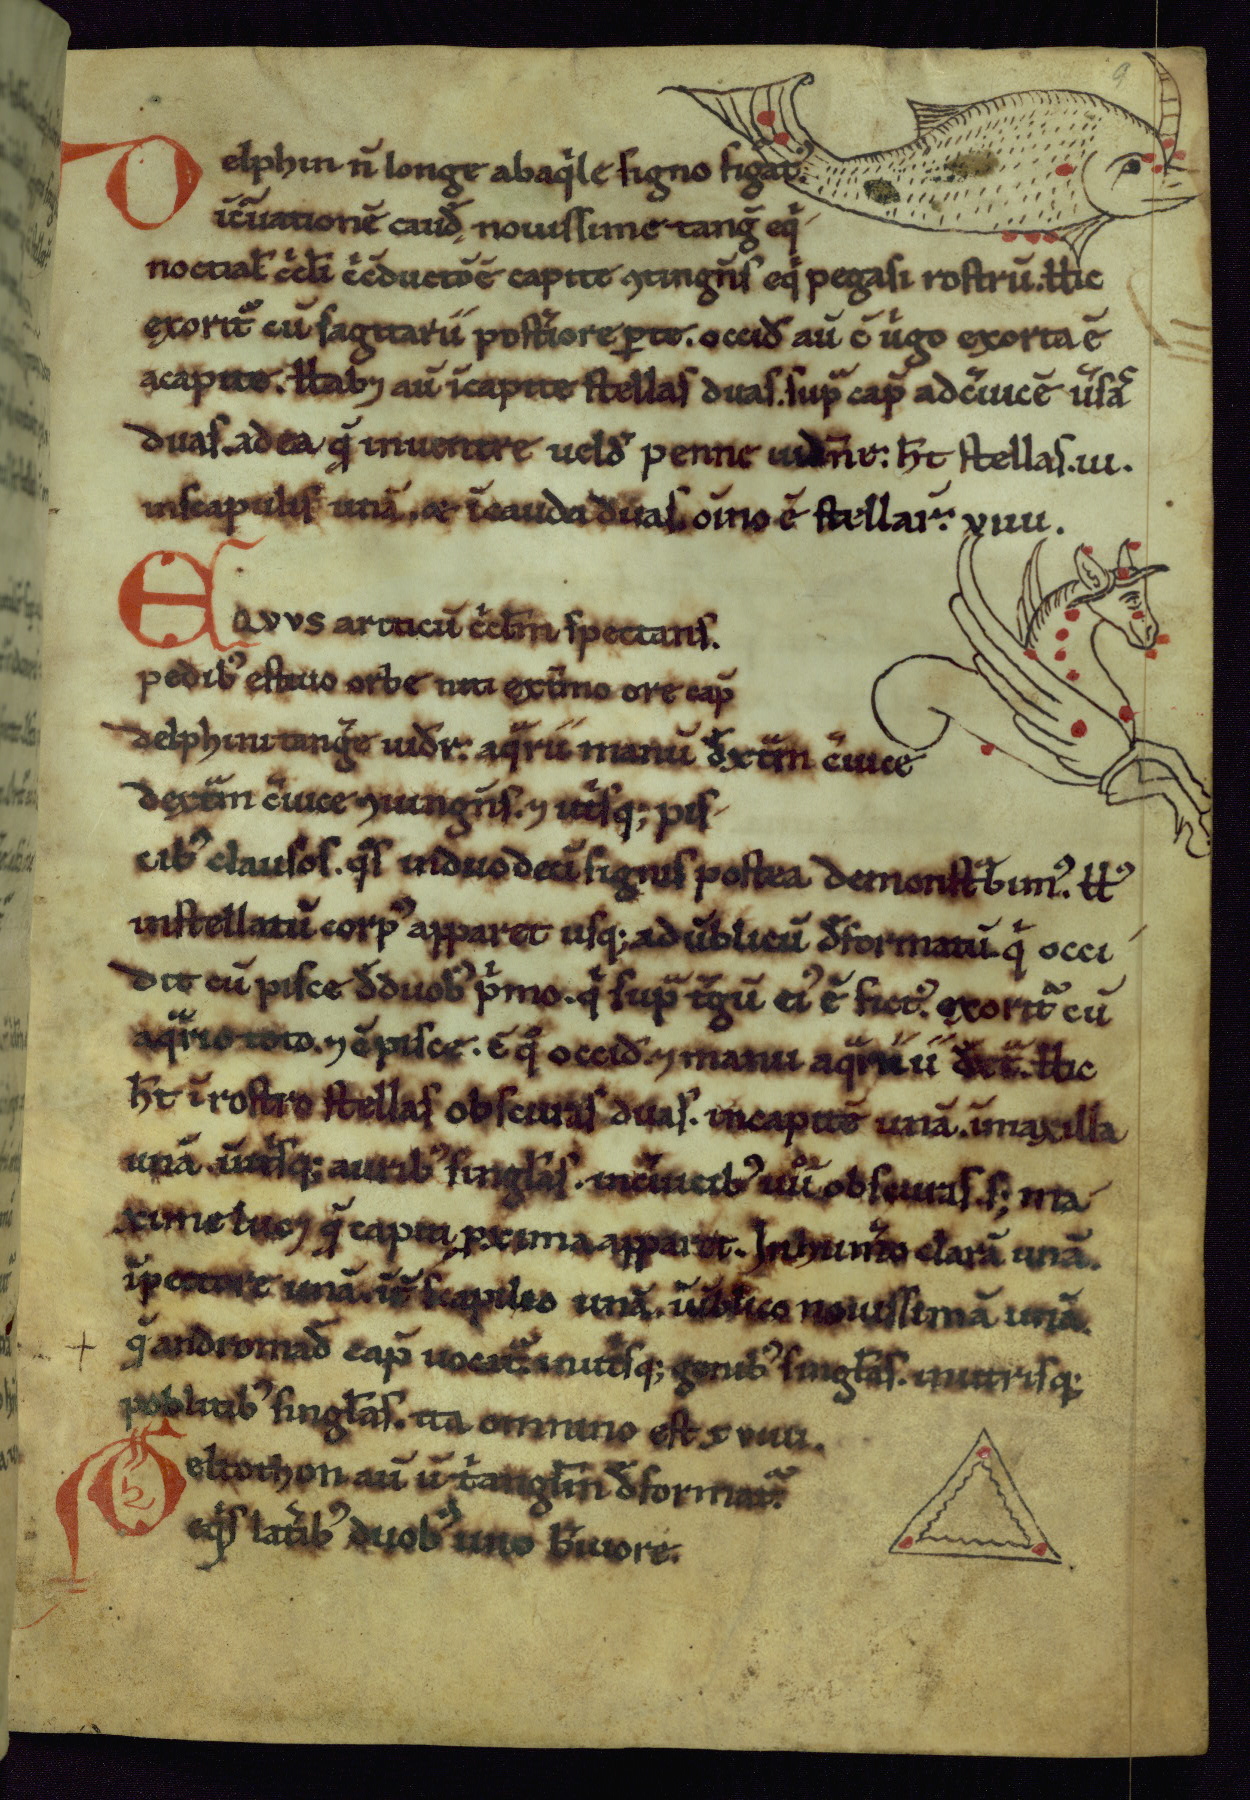 9
Delphin n̄ longe abaq̓le signo figat᷑.
ic̄uationē caud̄ nouissime tanḡ eq̓
noctial̄ c̄cl̄i c̄c̄ductōē capite ꝯiungn̄s eq̓ pegasi rostrū. Hic
exorit᷑ cū sagittarii post̄iore ꝑte. occid̄ aū c̄ ūgo exorta ē
acapite. Habꝫ aū icapite stellas duas. sup̄ cap̄ adc̄uicē ūsā
duas. ad ea q̄ inuentre ueld̄ penne uidn̄t᷑: h̄t stellas .iii.
inscapulis unā. ⁊ icauda duas. oīno ē stellar̄: viiii.
EQVVS articū c̄cl̄m spectans.
pedib᷒ estiuo orbe niti ext̄mo ore cap̄
delphini tanḡe uidr̄: aq̄rii manū dext̄m c̄uice
dext̄m c̄uice ꝯiungn̄s. ⁊ ut̓sqꝫ pis
cib᷒ clausos. q̓s induodeci signis postea demonst̄bim᷒. H᷒
instellatū corp᷒ apparet usqꝫ ad ūblicū d̄formatū. q̓ occi
dit cū pisce d̄duob᷒ p̓mo. q̓ sup̄ t̄gū ei᷒ ē fict᷒. exorit᷑ cū
aq̄rio toto. ⁊ c̄ pisce. c̄ q̓ occid̄. ⁊ manu aq̄rii ii dc̄t̄. Hic
h̄t i rostro stellas obscuras duas. incapite unā. imaxilla
unā. iut̓sqꝫ aurib᷒ singl̄as. inc̄uicib᷒ iiii᷑ obscuras. sꝫ ma
xime lucꝫ q̄ capiti ꝓxima apparet. Inhum̄o clarā unā.
ipectore unā. it̄ scapileo unā. iūblico nouissimā unā.
q̄ andromad̄ cap̄ uocat᷑. inut̓sqꝫ genib᷒ singl̄as. inutrisqꝫ
poblitib᷒ singl̄as. ita omnino est xviii.
Deltothon aū ū t̓angl̄m d̄format᷑.
eq̓s lat̄ib᷒ duob᷒ uno b̄uiore.